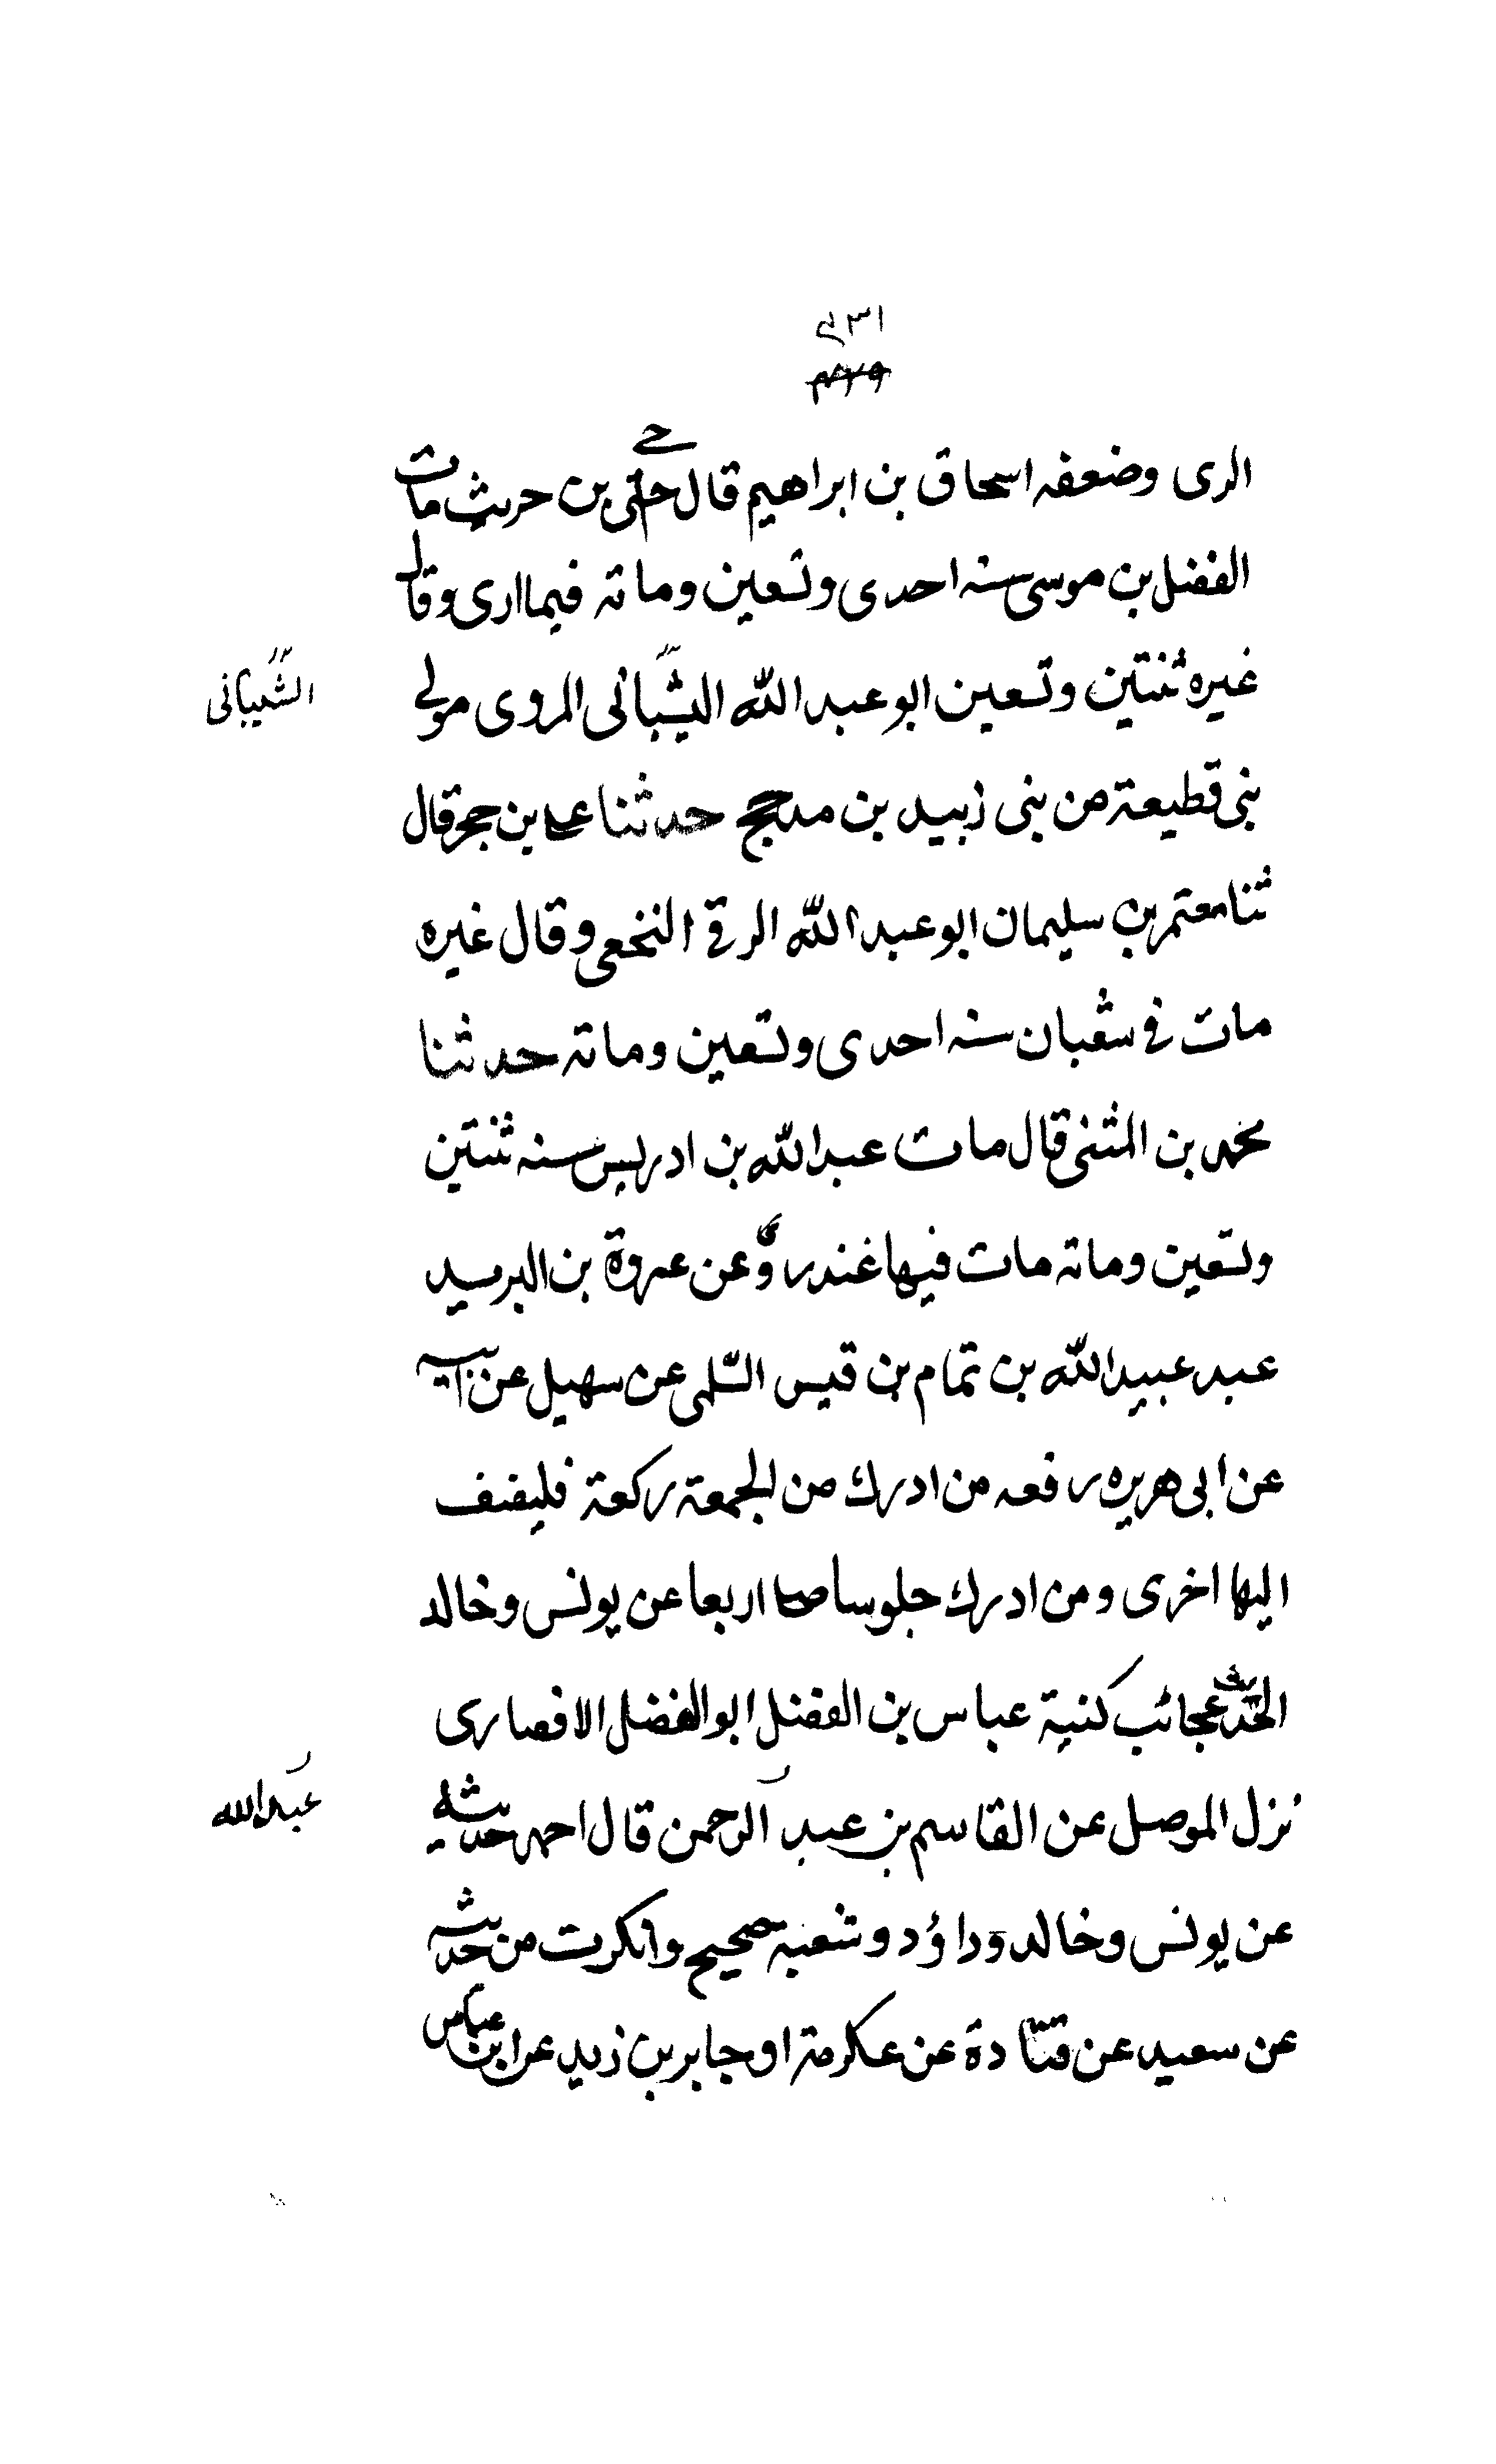 الرى وضعفه اسحاق بن ابراهيم قال حلى بن حريث مات
الفضل بن موسى سنه احدى وتسعين وماته فيما ارى وقال
غيره ثنتين وتسعين ابو عبد الله الشبانى المروى مولى
الشيبانى
بنى قطيعة من بنى زبيد بن مدحج حدثنا على بن حجر قال
ثنا معتمر بن سليمان ابو عبد الله الرقى النخعى وقال غيره
مات فى شعبان سنه احدى وتسعين وماته حدثنا
محمد بن المثنى قال مات عبد الله بن ادريس سنه ثنتين
وتسعين وماته مات فيها غندر وعن عروة بن البرسيد
عبد عبيد الله بن تمام بن قيس السلمى عن سهيل عن ابيه
عن ابى هريره رفعه من ادرك من الجمعة ركعة فليضف
اليها اخرى ومن ادرك جلوسا صلى اربعا عن يونس وخالد
الحديث عجائب كنية عباس بن الفضل ابو الفضل الافصارى
نزل الموصل عن القاسم بن عبد الرحمن قال احمد حديثه
عبد الله
عن يونس وخالد وداؤد وشعبة صحيح وانكرت من حديثه
عن سعيد عن قتادة عن عكرمة او جابر بن زيد عن ابن عباس